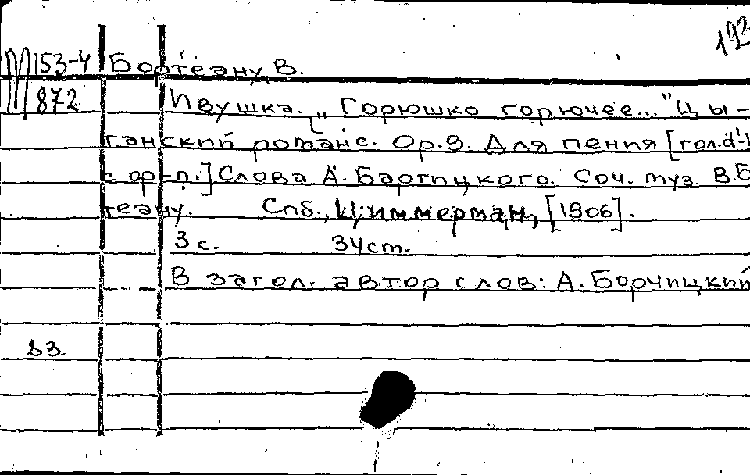 193
М153-4 Бортеану В.
872 Ивушка. „Горюшко горючее..." Цы-
ганский романс. Ор.9. Для пения [гол.d¹-
с фр-п.] Слова А. Бартицкого. Соч. муз. В.Б
теану. Спб., Циммерман, [1906].
3 с. 34 ст.
В загол. автор слов: А. Борчицкий